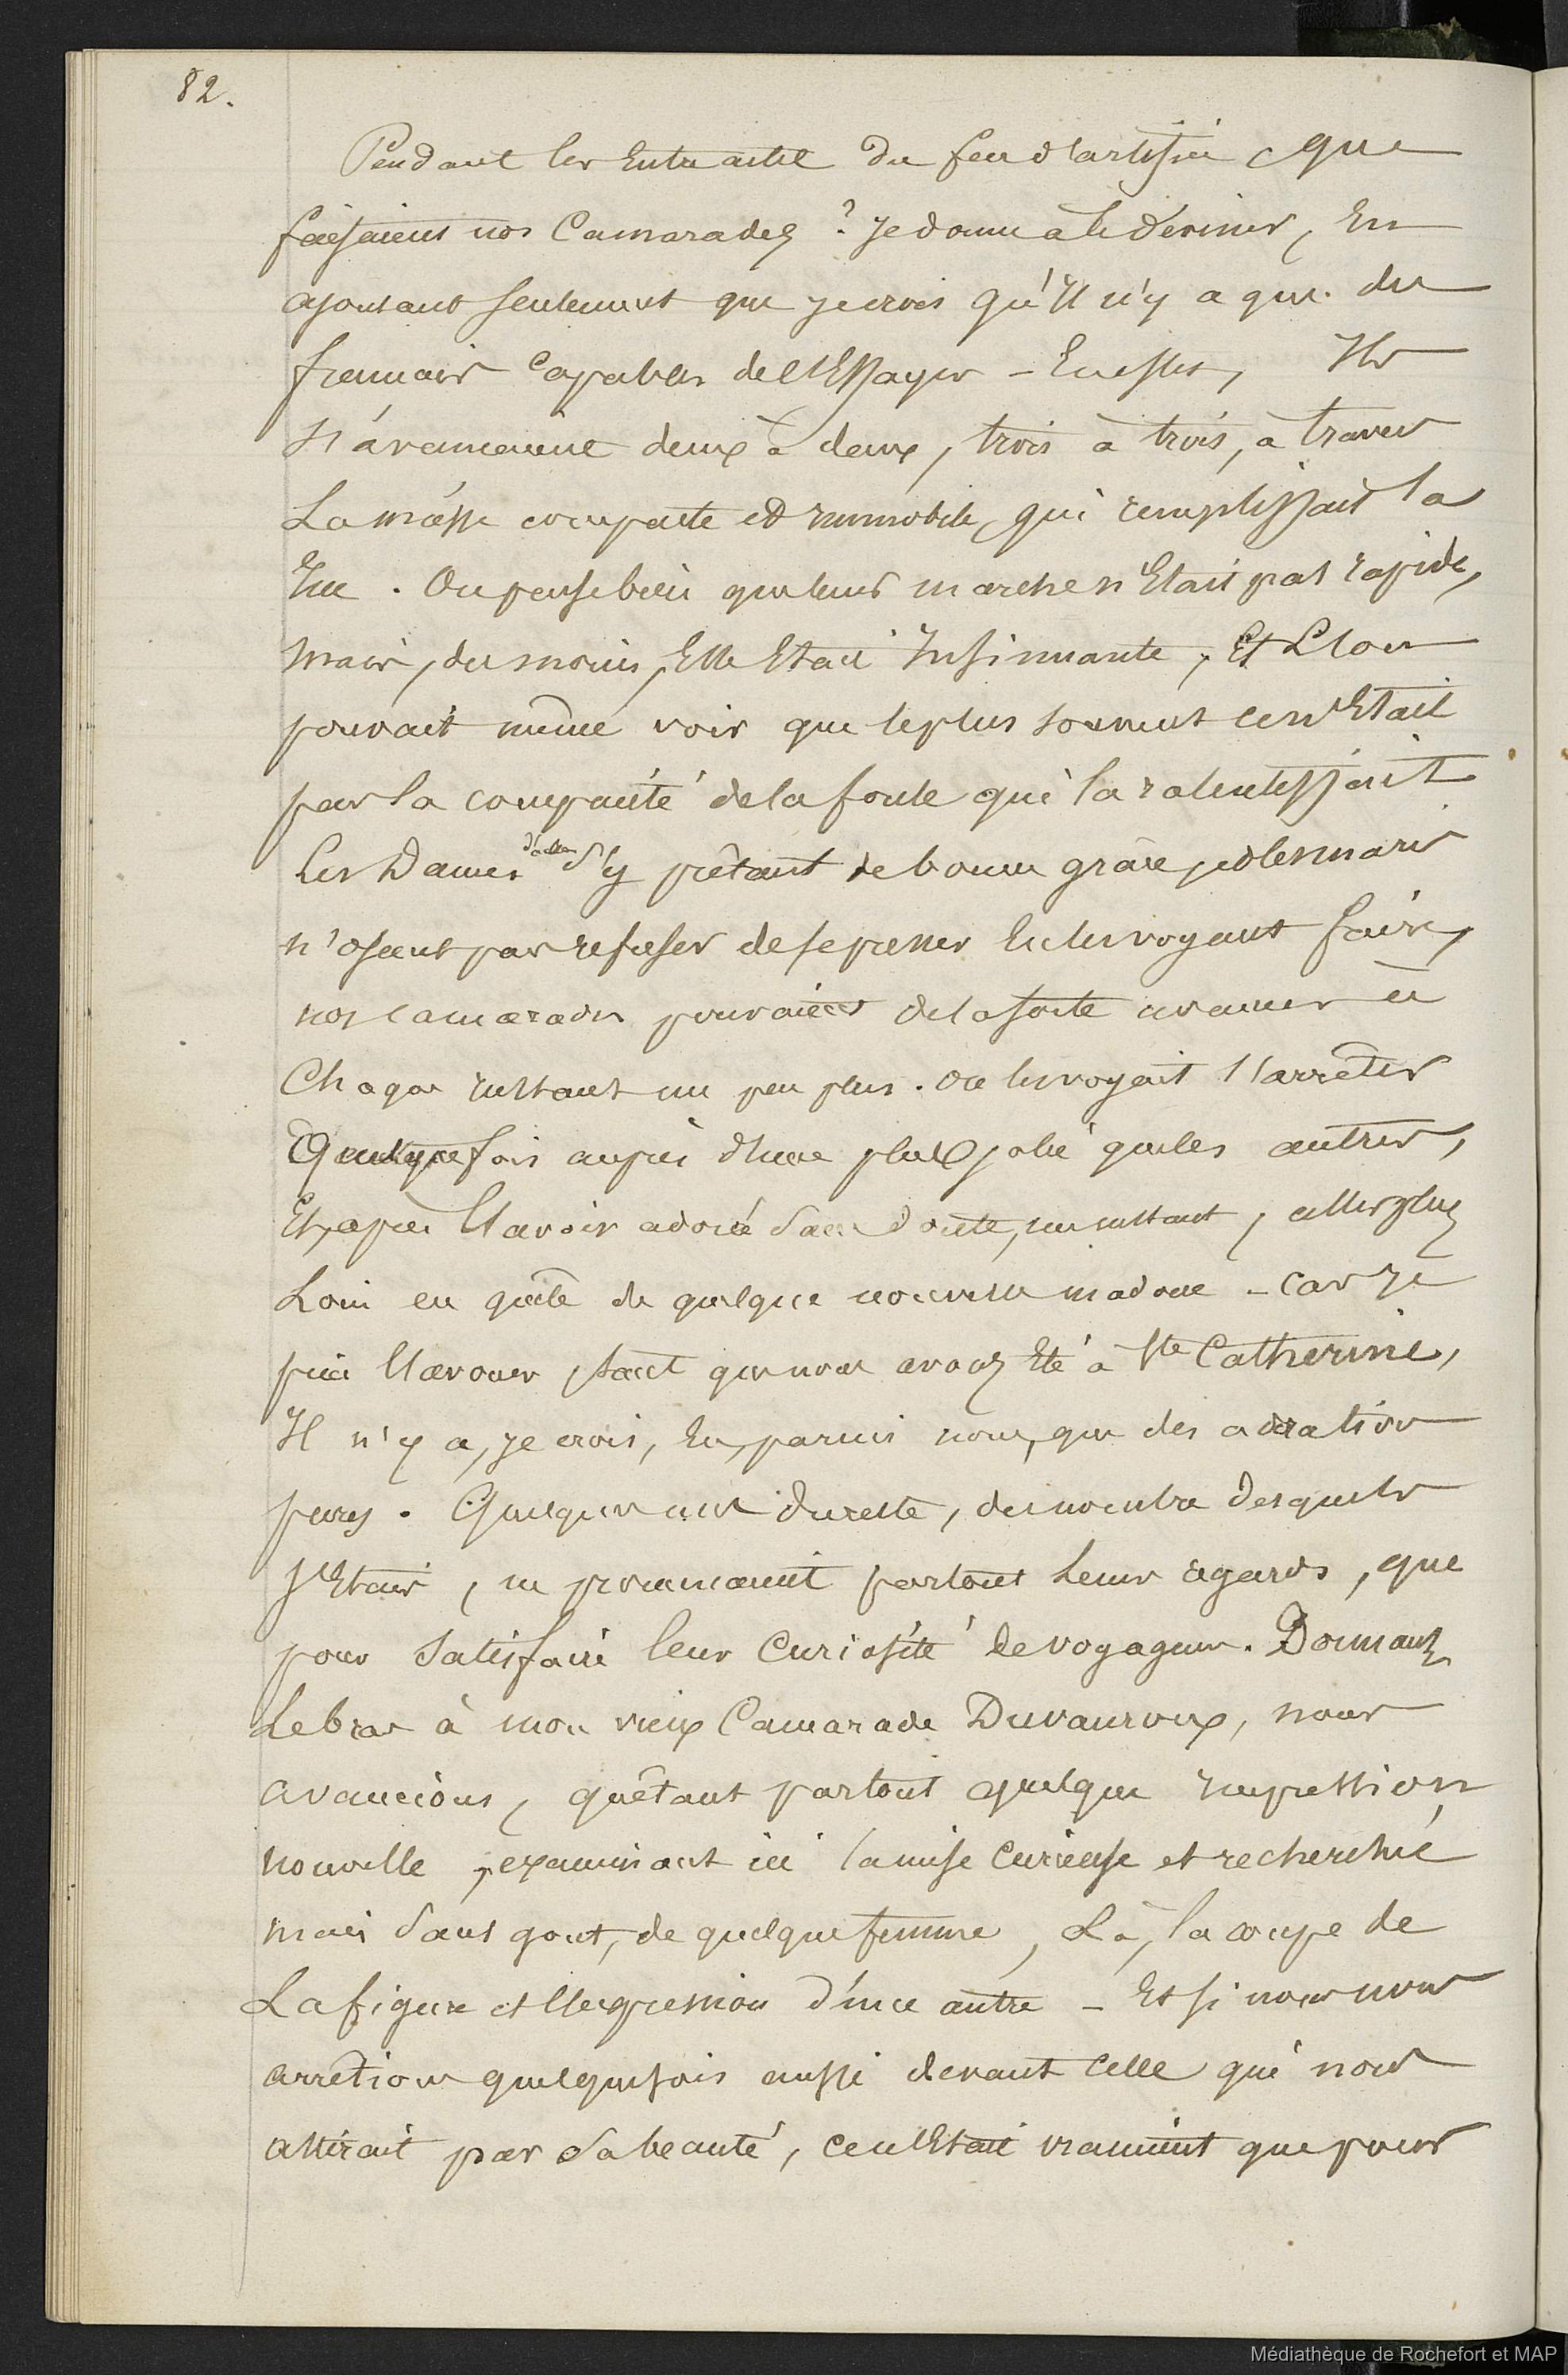 82.
Pendant les Entracte du feu d'artifice que
faisaient nos Camarades ? Je donne à le deviner, En
ajoutant seulement que je crois qu'Il n'y a que des
francais capables de l'Essayer - En effet, Ils
s'avancaient deux à deux, trois à trois, à travers
La masse compacte et immobile, qui remplissait la
Rue . On pense bien que leur marche n'Etait pas rapide,
mais, du moins, Elle Etait Insinuante, Et L'on
pouvait même voir que le plus souvent ce n'Etait
pas la compacité de la foule qui la ralentissait
Les Dames s'y prêtant de bonne grâce, et les maris
n'osant pas refuser de se presser En les voyant faire,
nos camarades pouvaient de la sorte avancer à
Chaque instant un peu plus. On les voyait s'arrêter
Quelquefois auprès d'une plus jolie que les autres,
Et, après l'avoir adorée sans doute, un instant, aller plus
Loin en quête de quelque nouvelle madone - Car je
puis l'avouer, tant que nous avons Eté à Ste Catherine,
Il n'y a, je crois, Eu, parmi nous, que des adoration
pures. Quelques uns du reste, du nombre desquels
J'Etais, ne promenaient partout leurs regards, que
pour satisfaire leur Curiosité de voyageurs. Donnant
Le bras à mon vieux Camarade Duvauroux, nous
avancions, quêtant partout quelque impression
nouvelle, examinant ici la mise Curieuse et recherchée
mais sans gout, de quelque femme, Là, la coupe de
La figure et l'expression d'une autre - Et si nous nous
arrêtions quelquefois aussi devant Celle qui nous
attirait par sa beauté, ce n'Etait vraiment que pour
Médiathèque de Rochefort et MAP